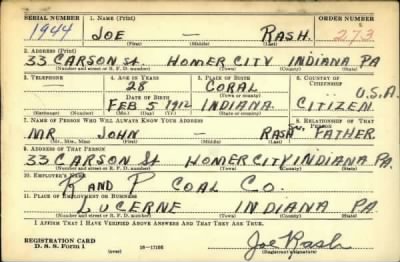 SERIAL NUMBER 1. NAME (Print) ORDER NUMBER
1944 JOE — RASH. 273
(First) (Middle) (Last)
2. ADDRESS (Print)
33 CARSON St. HOMER CITY INDIANA PA
(Number and street or R. F. D. number) (Town) (County) (State)
3. TELEPHONE 4. AGE IN YEARS 5. PLACE OF BIRTH 6. COUNTRY OF CITIZENSHIP
— 28 CORAL U.S.A
DATE OF BIRTH (Town or county)
FEB 5 1912 INDIANA. CITIZEN.
(Exchange) (No.) (Mo.) (Day) (Yr.) (State or country)
7. NAME OF PERSON WHO WILL ALWAYS KNOW YOUR ADDRESS 8. RELATIONSHIP OF THAT PERSON
MR JOHN — RASH Sr. FATHER
(Mr., Mrs., Miss) (First) (Middle) (Last)
9. ADDRESS OF THAT PERSON
33 CARSON St HOMER CITY INDIANA PA.
(Number and street or R. F. D. number) (Town) (County) (State)
10. EMPLOYER'S NAME
R AND P COAL CO.
11. PLACE OF EMPLOYMENT OR BUSINESS
LUCERNE INDIANA PA.
(Number and street or R. F. D. number) (Town) (County) (State)
I AFFIRM THAT I HAVE VERIFIED ABOVE ANSWERS AND THAT THEY ARE TRUE.
REGISTRATION CARD
D. S. S. Form 1 (over) 16—17105 Joe Rash
(Registrant's signature)